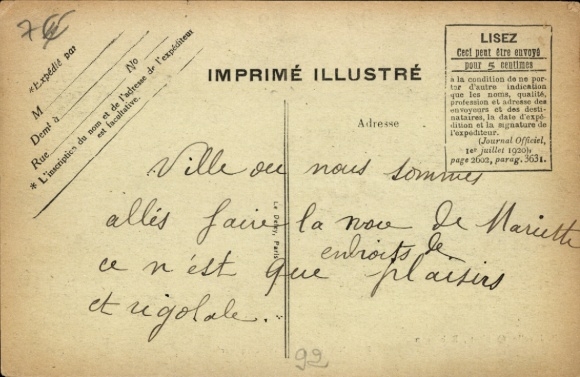 7
*Expédié par
M
No
Demt à
Rue
* L'inscription du nom et de l'adresse de l'expéditeur
est facultative.
IMPRIMÉ ILLUSTRÉ
Adresse
LISEZ
Ceci peut être envoyé
pour 5 centimes
à la condition de ne por-
ter d'autre indication
que les noms, qualité,
profession et adresse des
envoyeurs et des desti-
nataires, la date d'expé-
dition et la signature de
l'expéditeur.
(Journal Officiel,
1er juillet 1920),
page 2602, parag. 3631.
Ville ou nous sommes
allés faire la noce de Mariette
endroits de
ce n'est que plaisirs
et rigolade.
Le Deley, Paris
92